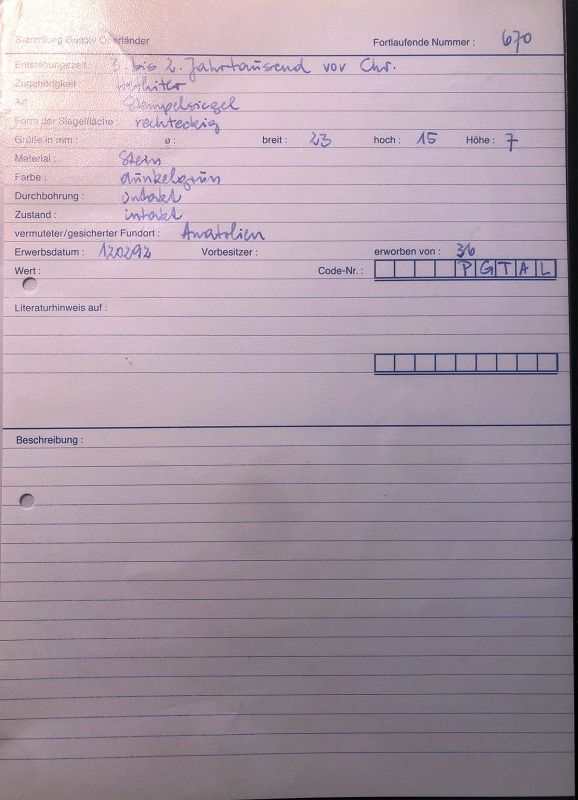 Sammlung Gustav Oberländer
Fortlaufende Nummer : 670
Entstehungszeit : 3. bis 2. Jahrtausend vor Chr.
Zugehörigkeit : Hethiter
Art Stempelsiegel
Form der Siegelfläche : rechteckig
Größe in mm : ø : breit : 23 hoch : 15 Höhe : 7
Material : Stein
Farbe : dunkelgrün
Durchbohrung : intakt
Zustand : intakt
vermuteter/gesicherter Fundort : Anatolien
Erwerbsdatum : 120292 Vorbesitzer : erworben von :
Wert : Code-Nr. : P G T A L
Literaturhinweis auf :
Beschreibung :